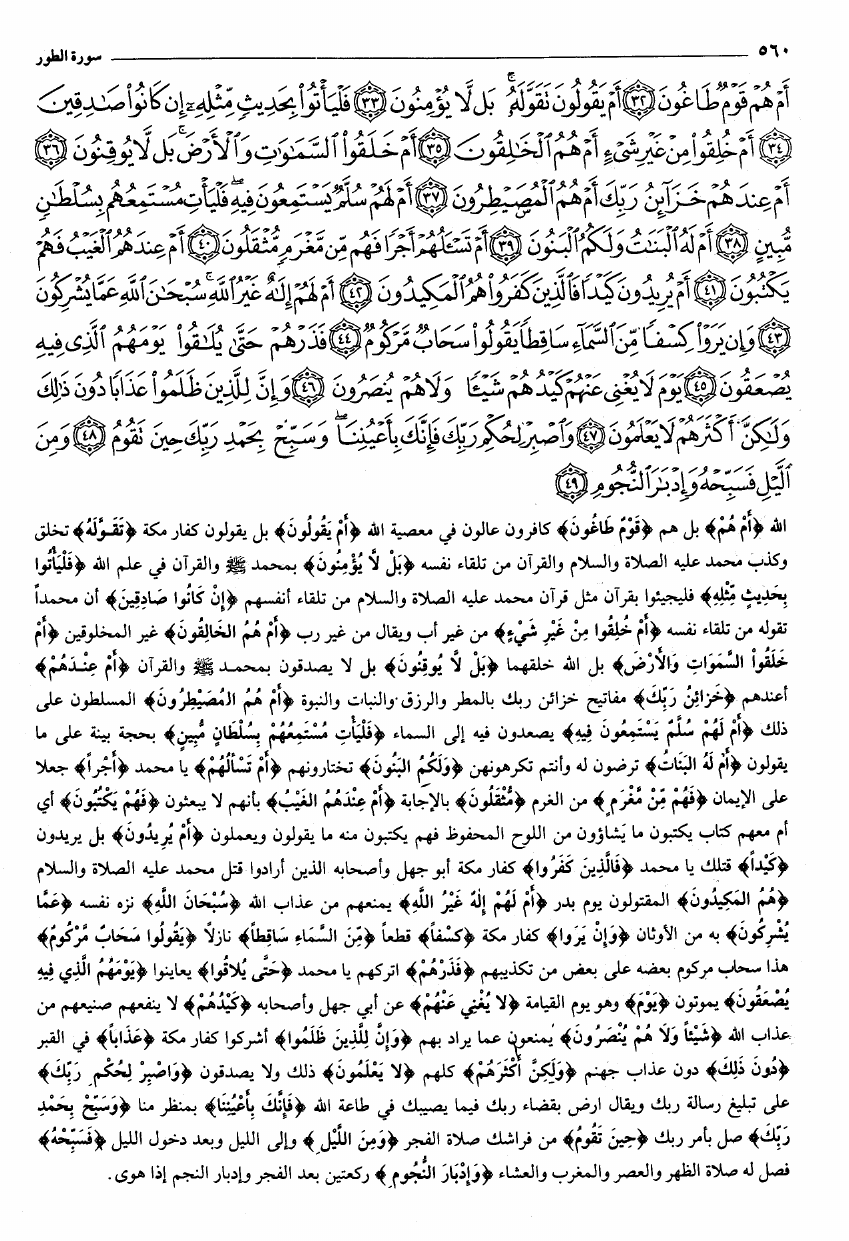 ٥٦٠ سورة الطور
أَمْ هُمْ قَوْمٌ طَاغُونَ ﴿٣٢﴾ أَمْ يَقُولُونَ تَقَوَّلَهُۥ ۚ بَل لَّا يُؤْمِنُونَ ﴿٣٣﴾ فَلْيَأْتُوا۟ بِحَدِيثٍ مِّثْلِهِۦٓ إِن كَانُوا۟ صَـٰدِقِينَ
﴿٣٤﴾ أَمْ خُلِقُوا۟ مِنْ غَيْرِ شَىْءٍ أَمْ هُمُ ٱلْخَـٰلِقُونَ ﴿٣٥﴾ أَمْ خَلَقُوا۟ ٱلسَّمَـٰوَٰتِ وَٱلْأَرْضَ ۚ بَل لَّا يُوقِنُونَ ﴿٣٦﴾
أَمْ عِندَهُمْ خَزَآئِنُ رَبِّكَ أَمْ هُمُ ٱلْمُصَۣيْطِرُونَ ﴿٣٧﴾ أَمْ لَهُمْ سُلَّمٌ يَسْتَمِعُونَ فِيهِ ۖ فَلْيَأْتِ مُسْتَمِعُهُم بِسُلْطَـٰنٍ
مُّبِينٍ ﴿٣٨﴾ أَمْ لَهُ ٱلْبَنَـٰتُ وَلَكُمُ ٱلْبَنُونَ ﴿٣٩﴾ أَمْ تَسْـَٔلُهُمْ أَجْرًا فَهُم مِّن مَّغْرَمٍ مُّثْقَلُونَ ﴿٤٠﴾ أَمْ عِندَهُمُ ٱلْغَيْبُ فَهُمْ
يَكْتُبُونَ ﴿٤١﴾ أَمْ يُرِيدُونَ كَيْدًا ۖ فَٱلَّذِينَ كَفَرُوا۟ هُمُ ٱلْمَكِيدُونَ ﴿٤٢﴾ أَمْ لَهُمْ إِلَـٰهٌ غَيْرُ ٱللَّهِ ۚ سُبْحَـٰنَ ٱللَّهِ عَمَّا يُشْرِكُونَ
﴿٤٣﴾ وَإِن يَرَوْا۟ كِسْفًا مِّنَ ٱلسَّمَآءِ سَاقِطًا يَقُولُوا۟ سَحَابٌ مَّرْكُومٌ ﴿٤٤﴾ فَذَرْهُمْ حَتَّىٰ يُلَـٰقُوا۟ يَوْمَهُمُ ٱلَّذِى فِيهِ
يُصْعَقُونَ ﴿٤٥﴾ يَوْمَ لَا يُغْنِى عَنْهُمْ كَيْدُهُمْ شَيْـًٔا وَلَا هُمْ يُنصَرُونَ ﴿٤٦﴾ وَإِنَّ لِلَّذِينَ ظَلَمُوا۟ عَذَابًا دُونَ ذَٰلِكَ
وَلَـٰكِنَّ أَكْثَرَهُمْ لَا يَعْلَمُونَ ﴿٤٧﴾ وَٱصْبِرْ لِحُكْمِ رَبِّكَ فَإِنَّكَ بِأَعْيُنِنَا ۖ وَسَبِّحْ بِحَمْدِ رَبِّكَ حِينَ تَقُومُ ﴿٤٨﴾ وَمِنَ
ٱلَّيْلِ فَسَبِّحْهُ وَإِدْبَـٰرَ ٱلنُّجُومِ ﴿٤٩﴾
الله ﴿أَمْ هُمْ﴾ بل هم ﴿قَوْمٌ طَاغُونَ﴾ كافرون عالون في معصية الله ﴿أَمْ يَقُولُونَ﴾ بل يقولون كفار مكة ﴿تَقَـوَّلَهُ﴾ تخلق
وكذب محمد عليه الصلاة والسلام والقرآن من تلقاء نفسه ﴿بَلْ لَّا يُؤْمِنُونَ﴾ بمحمد ﷺ والقرآن في علم الله ﴿فَلْيَأْتُوا
بِحَدِيثٍ مِّثْلِهِ﴾ فليجيئوا بقرآن مثل قرآن محمد عليه الصلاة والسلام من تلقاء أنفسهم ﴿إِنْ كَانُوا صَادِقِينَ﴾ أن محمداً
تقوله من تلقاء نفسه ﴿أَمْ خُلِقُوا مِنْ غَيْرِ شَيْءٍ﴾ من غير أب ويقال من غير رب ﴿أَمْ هُمُ الخَالِقُونَ﴾ غير المخلوقين ﴿أَمْ
خَلَقُوا السَّمَوَاتِ وَالأَرْضَ﴾ بل الله خلقهما ﴿بَلْ لَّا يُوقِنُونَ﴾ بل لا يصدقون بمحمـد ﷺ والقرآن ﴿أَمْ عِنْـدَهُمْ﴾
أعندهم ﴿خَزَائِنُ رَبِّكَ﴾ مفاتيح خزائن ربك بالمطر والرزق والنبات والنبوة ﴿أَمْ هُمُ المُصَيْطِرُونَ﴾ المسلطون على
ذلك ﴿أَمْ لَهُمْ سُلَّمٌ يَسْتَمِعُونَ فِيهِ﴾ يصعدون فيه إلى السماء ﴿فَلْيَأْتِ مُسْتَمِعُهُمْ بِسُلْطَانٍ مُّبِينٍ﴾ بحجة بينة على ما
يقولون ﴿أَمْ لَهُ البَنَاتُ﴾ ترضون له وأنتم تكرهونهن ﴿وَلَكُمُ البَنُونَ﴾ تختارونهم ﴿أَمْ تَسْأَلُهُمْ﴾ يا محمد ﴿أَجْراً﴾ جعلا
على الإيمان ﴿فَهُم مِّنْ مَّغْرَمٍ﴾ من الغرم ﴿مُّثْقَلُونَ﴾ بالإجابة ﴿أَمْ عِنْدَهُمُ الغَيْبُ﴾ بأنهم لا يبعثون ﴿فَهُمْ يَكْتُبُونَ﴾ أي
أم معهم كتاب يكتبون ما يَشاؤون من اللوح المحفوظ فهم يكتبون منه ما يقولون ويعملون ﴿أَمْ يُرِيدُونَ﴾ بل يريدون
﴿كَيْداً﴾ قتلك يا محمد ﴿فَالَّذِينَ كَفَرُوا﴾ كفار مكة أبو جهل وأصحابه الذين أرادوا قتل محمد عليه الصلاة والسلام
﴿هُمُ المَكِيدُونَ﴾ المقتولون يوم بدر ﴿أَمْ لَهُمْ إِلهٌ غَيْرُ اللَّهِ﴾ يمنعهم من عذاب الله ﴿سُبْحَانَ اللَّهِ﴾ نزه نفسه ﴿عَمَّا
يُشْرِكُونَ﴾ به من الأوثان ﴿وَإِنْ يَرَوا﴾ كفار مكة ﴿كِسْفاً﴾ قطعاً ﴿مِّنَ السَّمَاءِ سَاقِطاً﴾ نازلاً ﴿يَقُولُوا سَحَابٌ مَّرْكُومٌ﴾
هذا سحاب مركوم بعضه على بعض من تكذيبهم ﴿فَذَرْهُمْ﴾ اتركهم يا محمد ﴿حَتَّى يُلاقُوا﴾ يعاينوا ﴿يَوْمَهُمُ الَّذِي فِيهِ
يُصْعَقُونَ﴾ يموتون ﴿يَوْمَ﴾ وهو يوم القيامة ﴿لا يُغْنِي عَنْهُمْ﴾ عن أبي جهل وأصحابه ﴿كَيْدُهُمْ﴾ لا ينفعهم صنيعهم من
عذاب الله ﴿شَيْئاً وَلَا هُمْ يُنْصَرُونَ﴾ يُمنعون عما يراد بهم ﴿وَإِنَّ لِلَّذِينَ ظَلَمُوا﴾ أشركوا كفار مكة ﴿عَذَاباً﴾ في القبر
﴿دُونَ ذَلِكَ﴾ دون عذاب جهنم ﴿وَلَكِنَّ أَكْثَرَهُمْ﴾ كلهم ﴿لَا يَعْلَمُونَ﴾ ذلك ولا يصدقون ﴿وَاصْبِرْ لِحُكْمِ رَبِّكَ﴾
على تبليغ رسالة ربك ويقال ارض بقضاء ربك فيما يصيبك في طاعة الله ﴿فَإِنَّكَ بِأَعْيُنِنَا﴾ بمنظر منا ﴿وَسَبِّحْ بِحَمْدِ
رَبِّكَ﴾ صل بأمر ربك ﴿حِينَ تَقُومُ﴾ من فراشك صلاة الفجر ﴿وَمِنَ اللَّيْلِ﴾ وإلى الليل وبعد دخول الليل ﴿فَسَبِّحْهُ﴾
فصل له صلاة الظهر والعصر والمغرب والعشاء ﴿وَإِدْبَارَ النُّجُومِ﴾ ركعتين بعد الفجر وإدبار النجم إذا هوى.